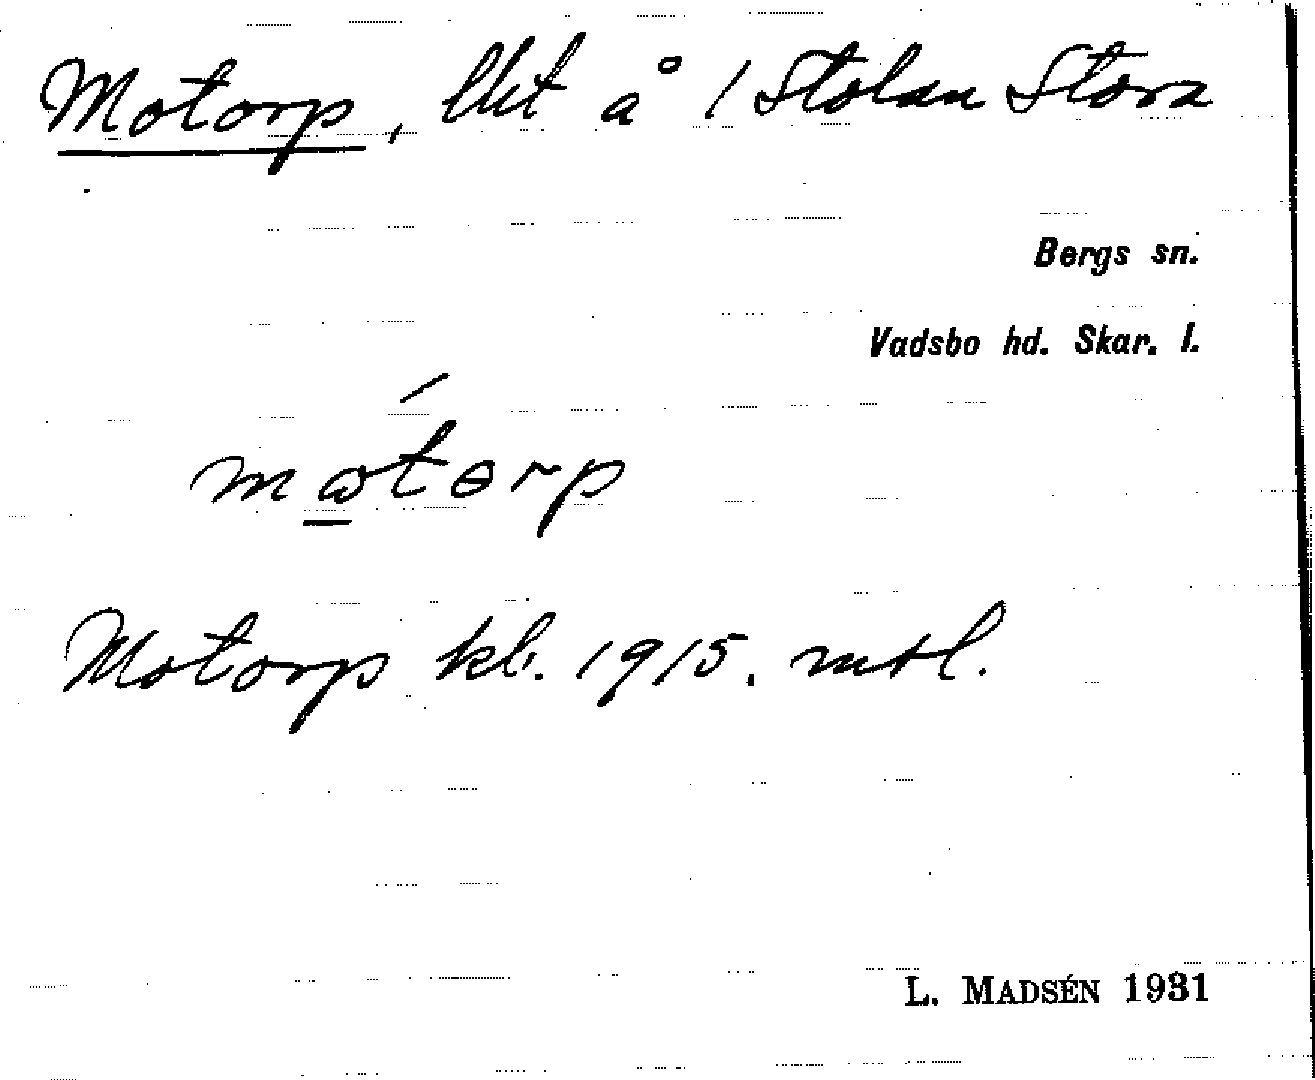 Motorp, lht å 1 Stolan Stora
Bergs sn.
Vadsbo hd. Skar. l.
mɷtɵrp
Motorp kb. 1915. mtl.
L. MADSÉN 1931